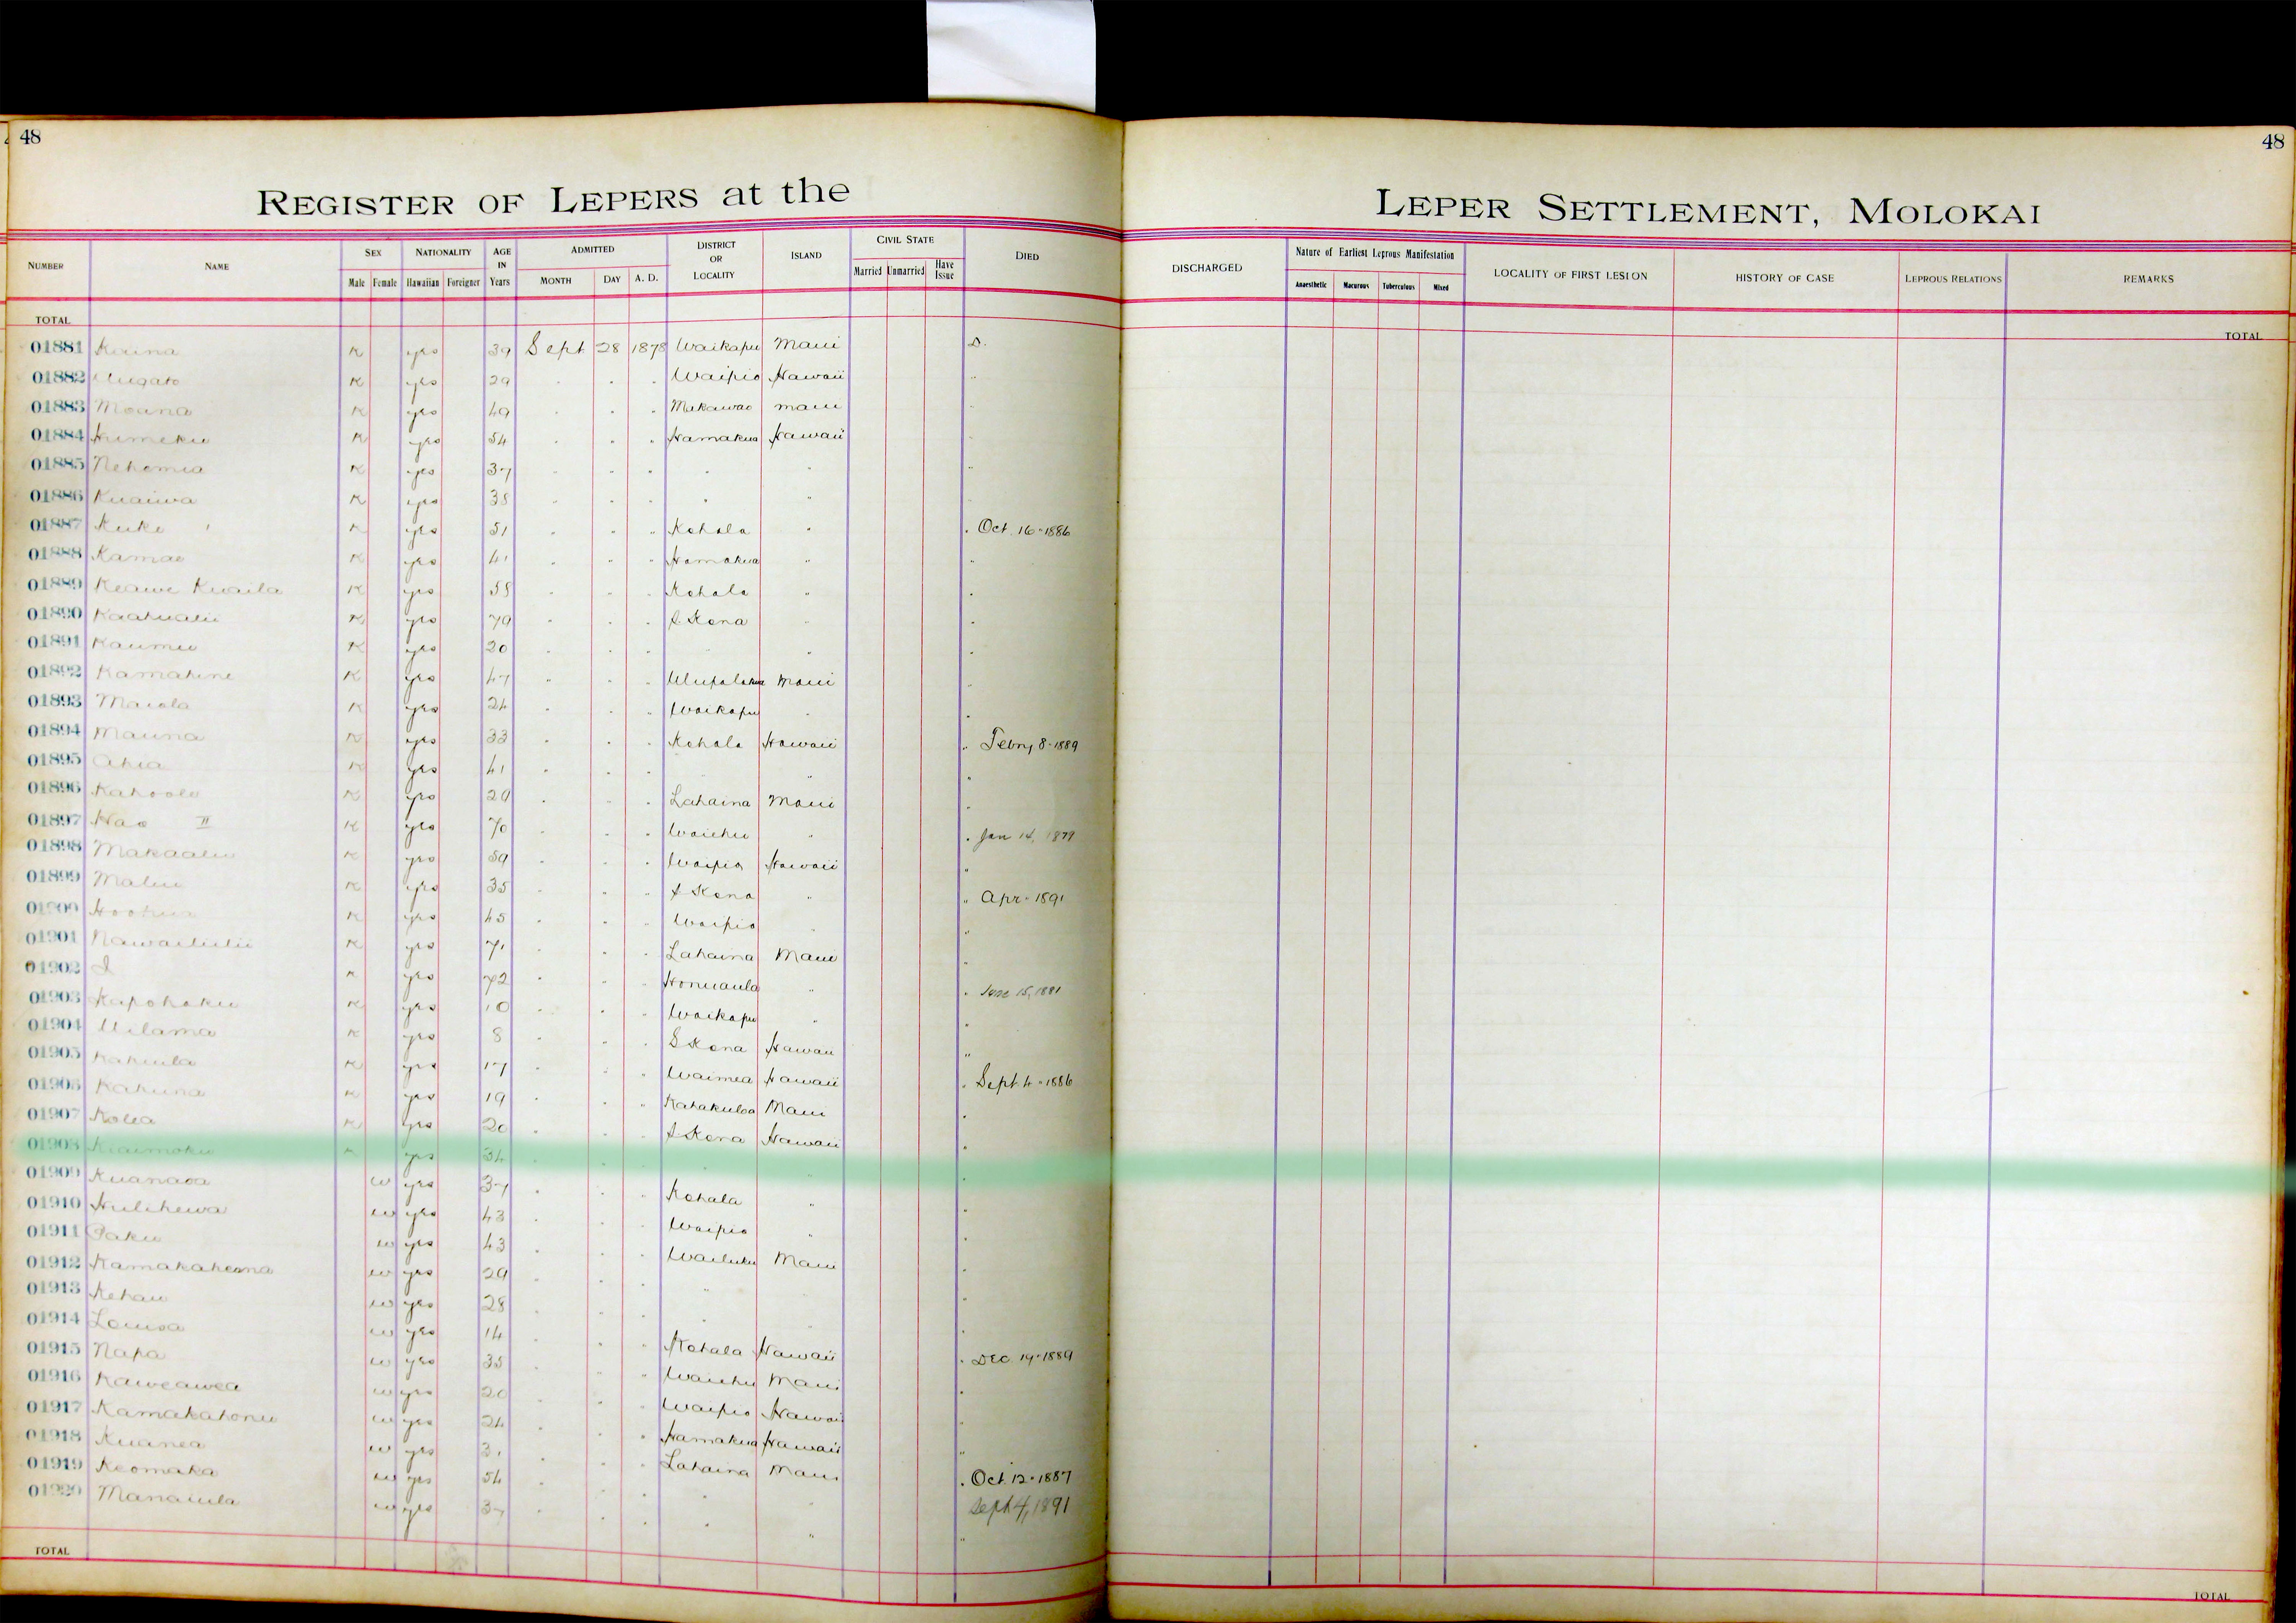 48
48
REGISTER OF LEPERS at the
LEPER SETTLEMENT, MOLOKAI
NUMBER NAME SEX NATIONALITY AGE IN Years ADMITTED DISTRICT OR LOCALITY ISLAND CIVIL STATE DIED DISCHARGED Nature of Earliest Leprous Manifestation LOCALITY OF FIRST LESION HISTORY OF CASE LEPROUS RELATIONS REMARKS
Male Female Hawaiian Foreigner MONTH DAY A. D. Married Unmarried Have Issue Anaesthetic Macurous Tuberculous Mixed
TOTAL TOTAL
01881 K yes 39 Sept 28 1878 Waikapu Maui D.
01882 K yes 29 " " " Waipio Hawaii "
01883 Moana K yes 49 " " " Makawao Maui "
01884 Humeku K yes 54 " " " Hamakua Hawaii "
01885 Nehemia K yes 37 " " " " " "
01886 Kuaiwa K yes 38 " " " " " "
01887 Kuke K yes 51 " " " Kohala " " Oct. 16-1886
01888 Kamao K yes 41 " " " Hamakua " "
01889 Keawe Kuaila K yes 58 " " " Kohala " "
01890 Kaahualii K yes 79 " " " Kona " "
01891 Kaumu K yes 20 " " " " " "
01892 Kamahine K yes 47 " " " Ulupalakua Maui "
01893 Maiola K yes 24 " " " Waikapu " "
01894 Mauna K yes 33 " " " Kohala Hawaii " Febry 8-1889
01895 Ahia K yes 41 " " " " " "
01896 Kahoole K yes 29 " " " Lahaina Maui "
01897 Hao II K yes 70 " " " Waiehu " " Jan 14, 1879
01898 Makaalu K yes 59 " " " Waipio Hawaii "
01899 Malu K yes 35 " " " Kona " " Apr- 1891
01900 Hoohua K yes 45 " " " Waipio " "
01901 Nawailiilii K yes 71 " " " Lahaina Maui "
01902 I K yes 72 " " " Honuaula " " June 15, 1881
01903 Kapohaku K yes 10 " " " Waikapu " "
01904 Uilama K yes 8 " " " S Kona Hawaii "
01905 Kahiula K yes 17 " " " Waimea Hawaii " Sept. 4-1886
01906 Kahuna K yes 19 " " " Kahakuloa Maui "
01907 Kolea K yes 20 " " " Kona Hawaii "
01908 Kiaimoku K yes 34 " " " " " "
01909 Kuanaoa w yes 37 " " " Kohala " "
01910 Hulihewa w yes 43 " " " Waipio " "
01911 Paku w yes 43 " " " Wailuku Maui "
01912 Kamakaheana w yes 29 " " " " " "
01913 Kehau w yes 28 " " " " " "
01914 Louisa w yes 14 " " " Kohala Hawaii " Dec. 19-1889
01915 Napa w yes 35 " " " Waiehu Maui "
01916 Kaweawea w yes 20 " " " Waipio Hawaii "
01917 Kamakahonu w yes 24 " " " Hamakua Hawaii "
01918 Kuanea w yes 31 " " " Lahaina Maui " Oct 12-1887
01919 Keomaka w yes 54 " " " " " Sept 4, 1891
01920 Manaiula w yes 37 " " " " " "
TOTAL TOTAL